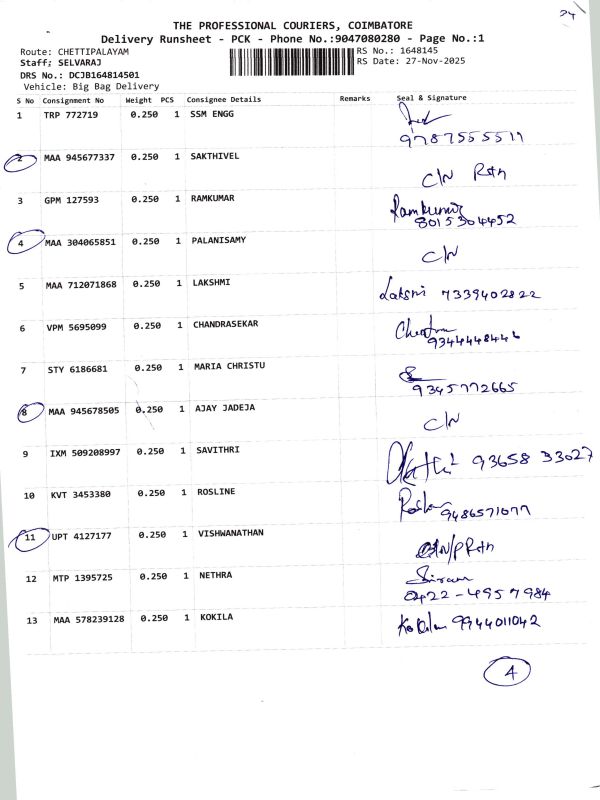 24
THE PROFESSIONAL COURIERS, COIMBATORE
Delivery Runsheet - PCK - Phone No.:9047080280 - Page No.:1
Route: CHETTIPALAYAM
RS No.: 1648145
Staff: SELVARAJ
RS Date: 27-Nov-2025
DRS No.: DCJB164814501
Vehicle: Big Bag Delivery
S No Consignment No Weight PCS Consignee Details Remarks Seal & Signature
1 TRP 772719 0.250 1 SSM ENGG
9787555511
2 MAA 945677337 0.250 1 SAKTHIVEL
C/N Rtn
3 GPM 127593 0.250 1 RAMKUMAR Ramkumar
8015304452
4 MAA 304065851 0.250 1 PALANISAMY
C/N
5 MAA 712071868 0.250 1 LAKSHMI Laksmi 7339402822
6 VPM 5695099 0.250 1 CHANDRASEKAR
9344448446
7 STY 6186681 0.250 1 MARIA CHRISTU
9345772665
8 MAA 945678505 0.250 1 AJAY JADEJA
C/N
9 IXM 509208997 0.250 1 SAVITHRI 93658 33027
10 KVT 3453380 0.250 1 ROSLINE
9486571077
11 UPT 4127177 0.250 1 VISHWANATHAN
C/N/P Rtn
12 MTP 1395725 0.250 1 NETHRA
0422-4957984
13 MAA 578239128 0.250 1 KOKILA Kokila 9944011042
4